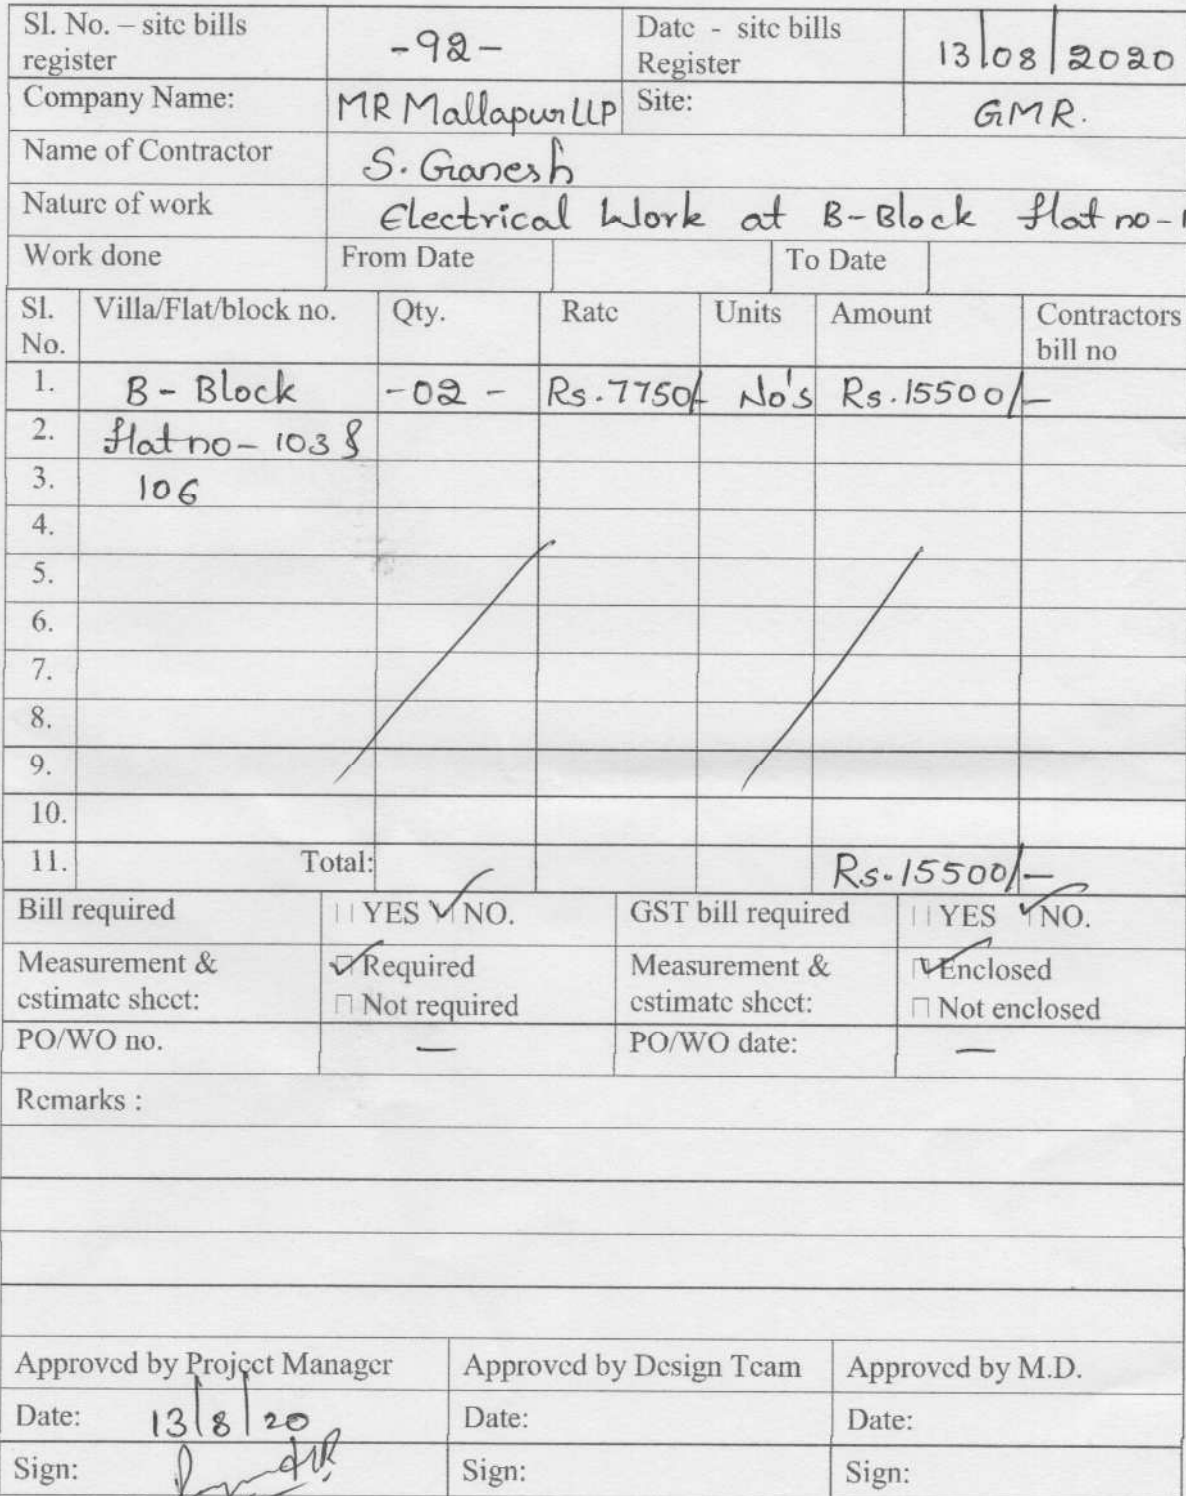 Sl. No. – site bills register -92- Date - site bills Register 13/08/2020
Company Name: MR Mallapur LLP Site: GMR.
Name of Contractor S. Ganesh
Nature of work Electrical Work at B-Block flat no-1
Work done From Date To Date
Sl. No. Villa/Flat/block no. Qty. Rate Units Amount Contractors bill no
1. B-Block -02- Rs.7750/- No's Rs.15500/-
2. flat no- 103 &
3. 106
4.
5.
6.
7.
8.
9.
10.
11. Total: Rs.15500/-
Bill required YES NO. GST bill required YES NO.
Measurement & estimate sheet: Required Measurement & estimate sheet: Enclosed
Not required Not enclosed
PO/WO no. — PO/WO date: —
Remarks :
Approved by Project Manager Approved by Design Team Approved by M.D.
Date: 13/8/20 Date: Date:
Sign: Sign: Sign: